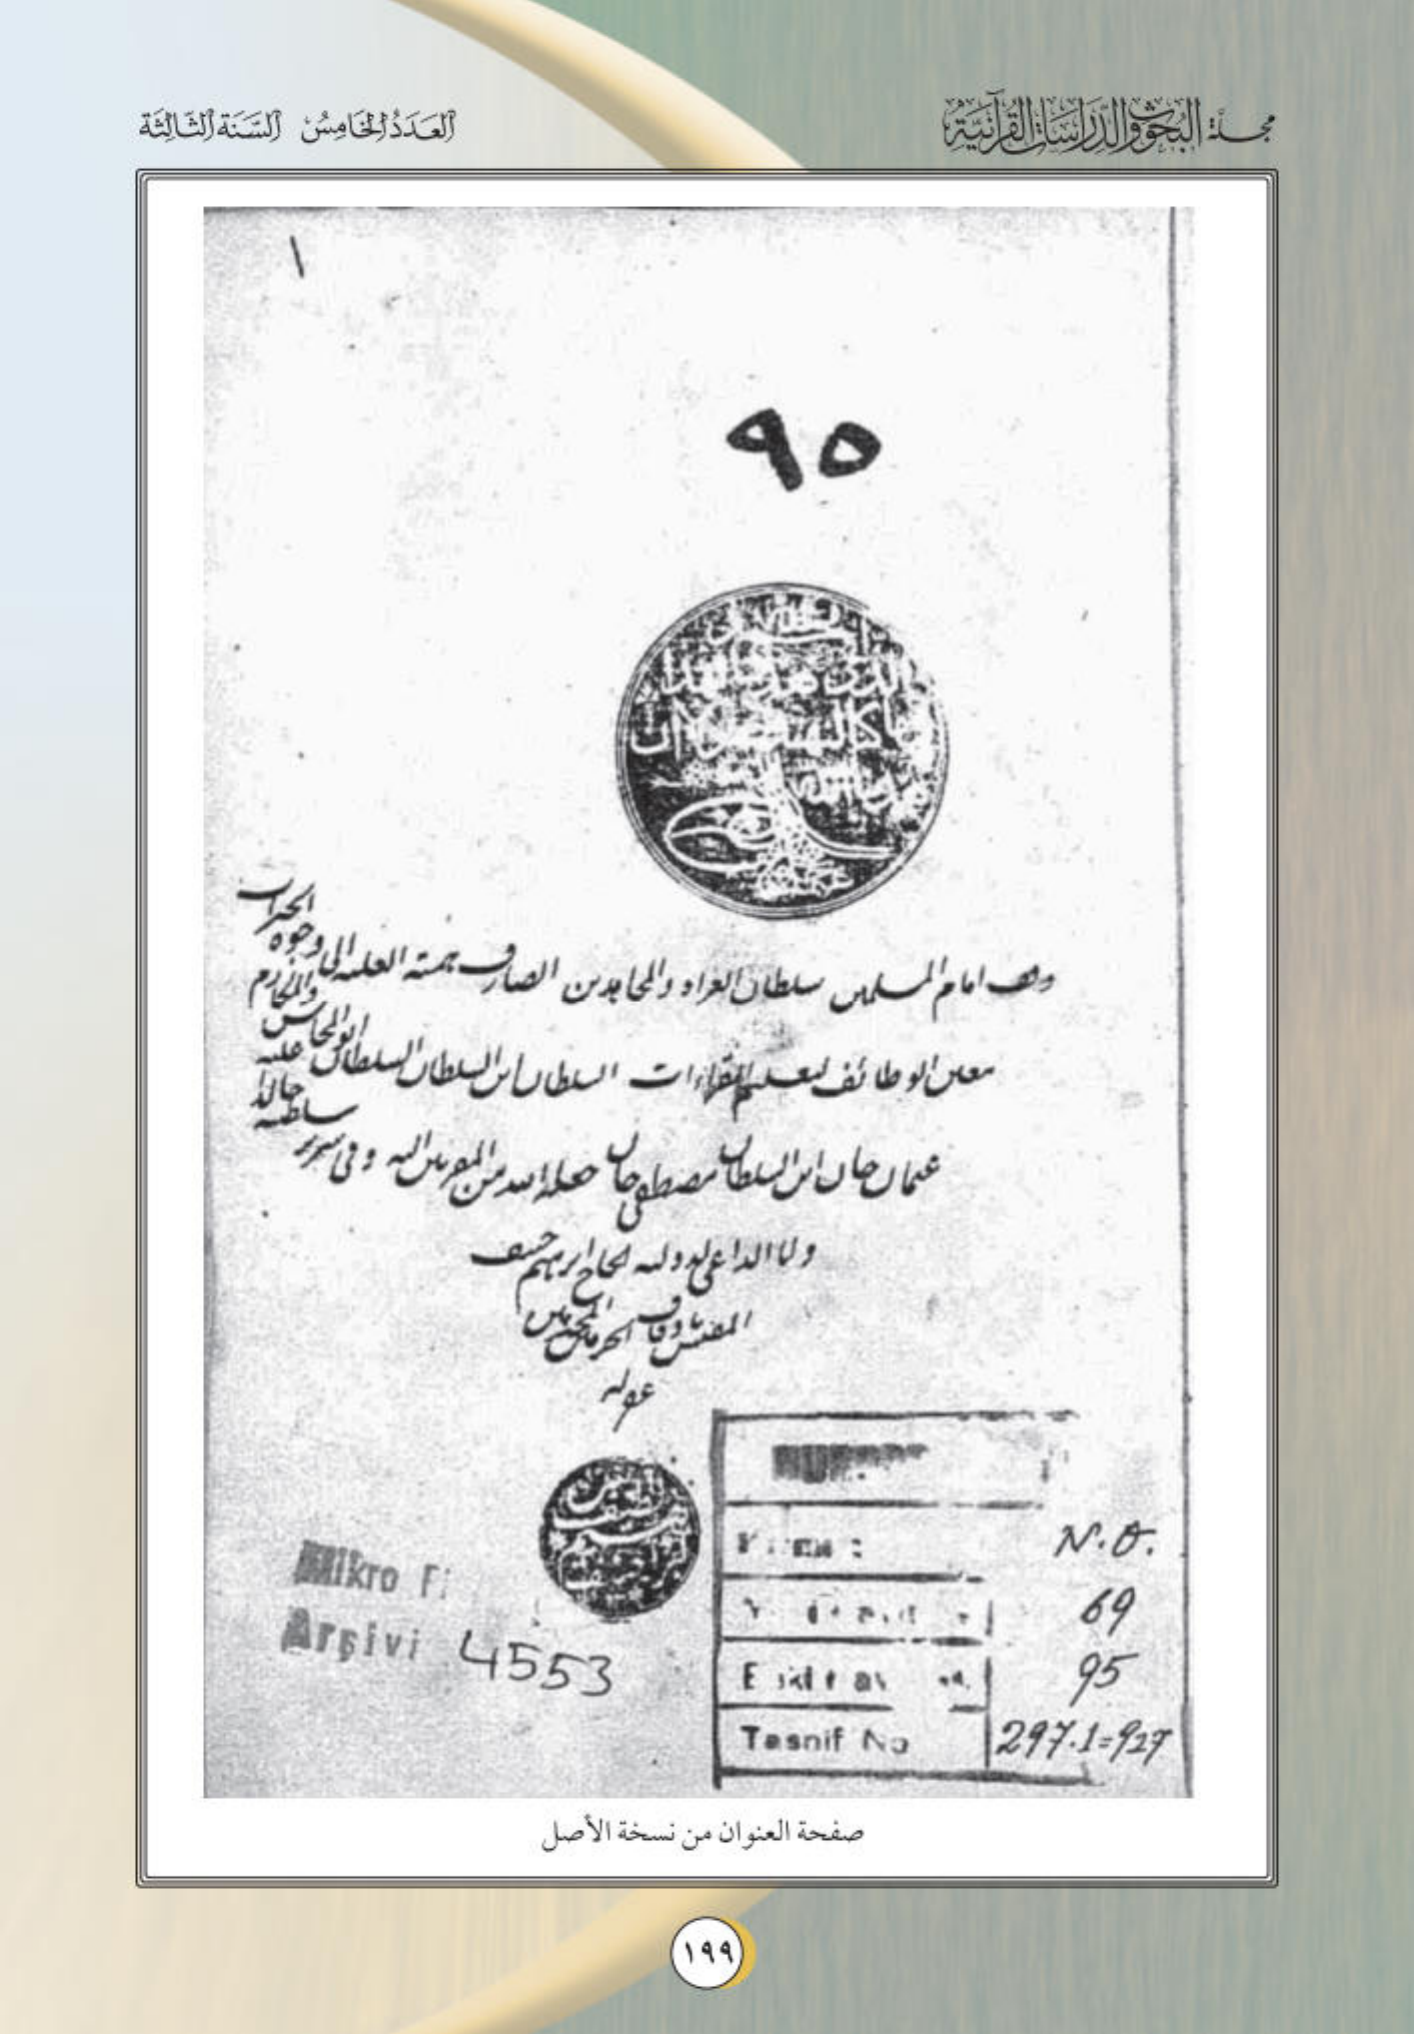 مجلة البحوث والدراسات القرآنية
العدد الخامس السنة الثالثة
١
٩٥
وقف امام المسلمين سلطان الغزاة والمجاهدين الصارف همته العلية الى وجوه الخيرات
معين الوظائف لتعليم القراءات السلطان ابن السلطان السلطان ابو المحاسن والمكارم
عثمان خان ابن السلطان مصطفى خان جعله الله من المقربين اليه وفى سرير سلطنته
وانا الداعى لدولته الحاج ابرهيم حنيف
المفتش باوقاف الحرمين المحترمين
غفر له
Mikro Fi
Arşivi 4553
N.O.
69
95
Tasnif No 297.1=927
صفحة العنوان من نسخة الأصل
١٩٩